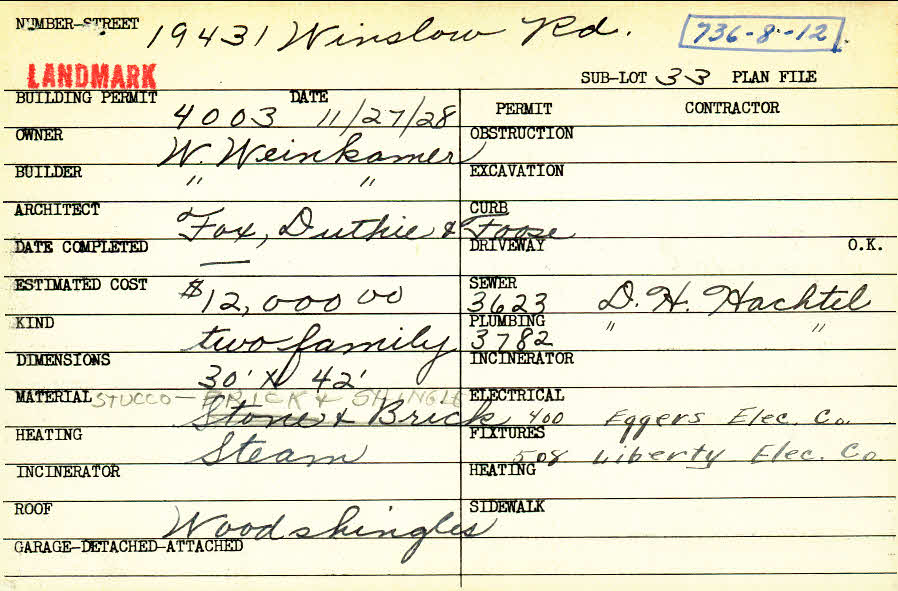 NUMBER-STREET 19431 Winslow Rd. 736-8-12
LANDMARK SUB-LOT 33 PLAN FILE
BUILDING PERMIT 4003 DATE 11/27/28 PERMIT CONTRACTOR
OWNER W. Weinkamer OBSTRUCTION
BUILDER " " EXCAVATION
ARCHITECT Fox, Duthie & Foose CURB
DATE COMPLETED — DRIVEWAY O.K.
ESTIMATED COST $12,000 00 SEWER 3623 D. H. Hachtel
KIND two family PLUMBING 3782 " "
DIMENSIONS 30' X 42' INCINERATOR
MATERIAL STUCCO - BRICK & SHINGLE ELECTRICAL
Stone & Brick 400 Eggers Elec. Co.
HEATING Steam FIXTURES 508 Liberty Elec. Co.
INCINERATOR HEATING
ROOF Wood shingles SIDEWALK
GARAGE-DETACHED-ATTACHED